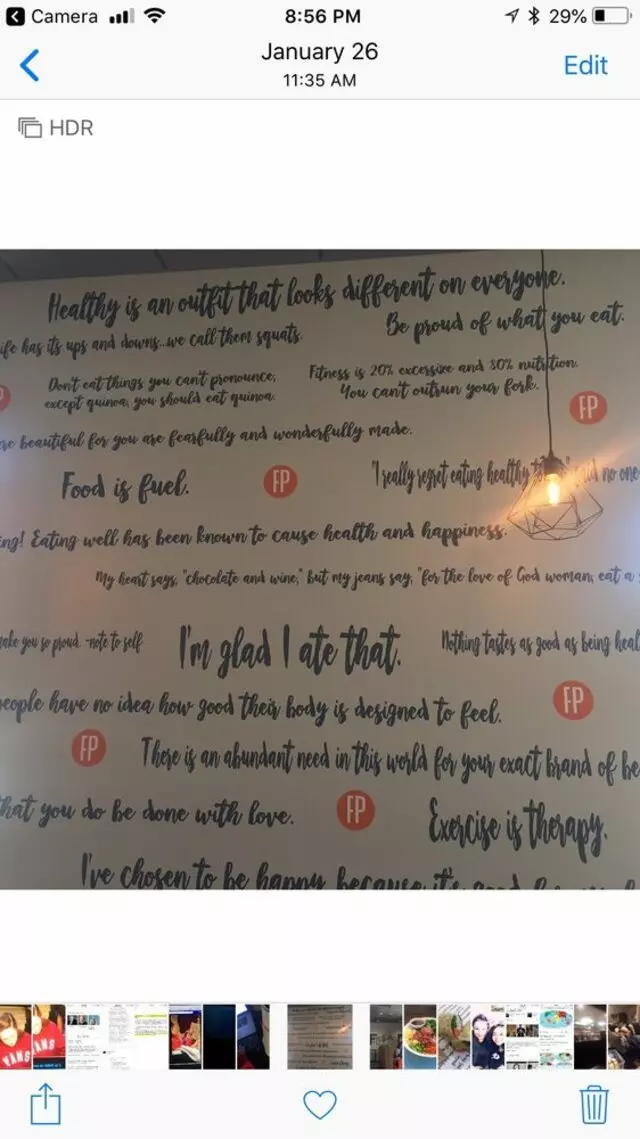 Camera 8:56 PM 29%
January 26
11:35 AM
Edit
HDR
Healthy is an outfit that looks different on everyone.
Be proud of what you eat.
ife has its ups and downs...we call them squats.
Don't eat things you can't pronounce,
except quinoa, you should eat quinoa.
Fitness is 20% excersize and 80% nutrition.
You can't outrun your fork.
FP
re beautiful for you are fearfully and wonderfully made.
Food is fuel.
FP
"I really regret eating healthy said no one
ing! Eating well has been known to cause health and happiness.
My heart says, "chocolate and wine," but my jeans say, "for the love of God woman, eat a
ake you so proud. -note to self
I'm glad I ate that.
Nothing tastes as good as being heal
people have no idea how good their body is designed to feel.
FP
FP
There is an abundant need in this world for your exact brand of be
hat you do be done with love.
FP
Exercise is therapy.
I've chosen to be happy because it's good
VANS
VANS